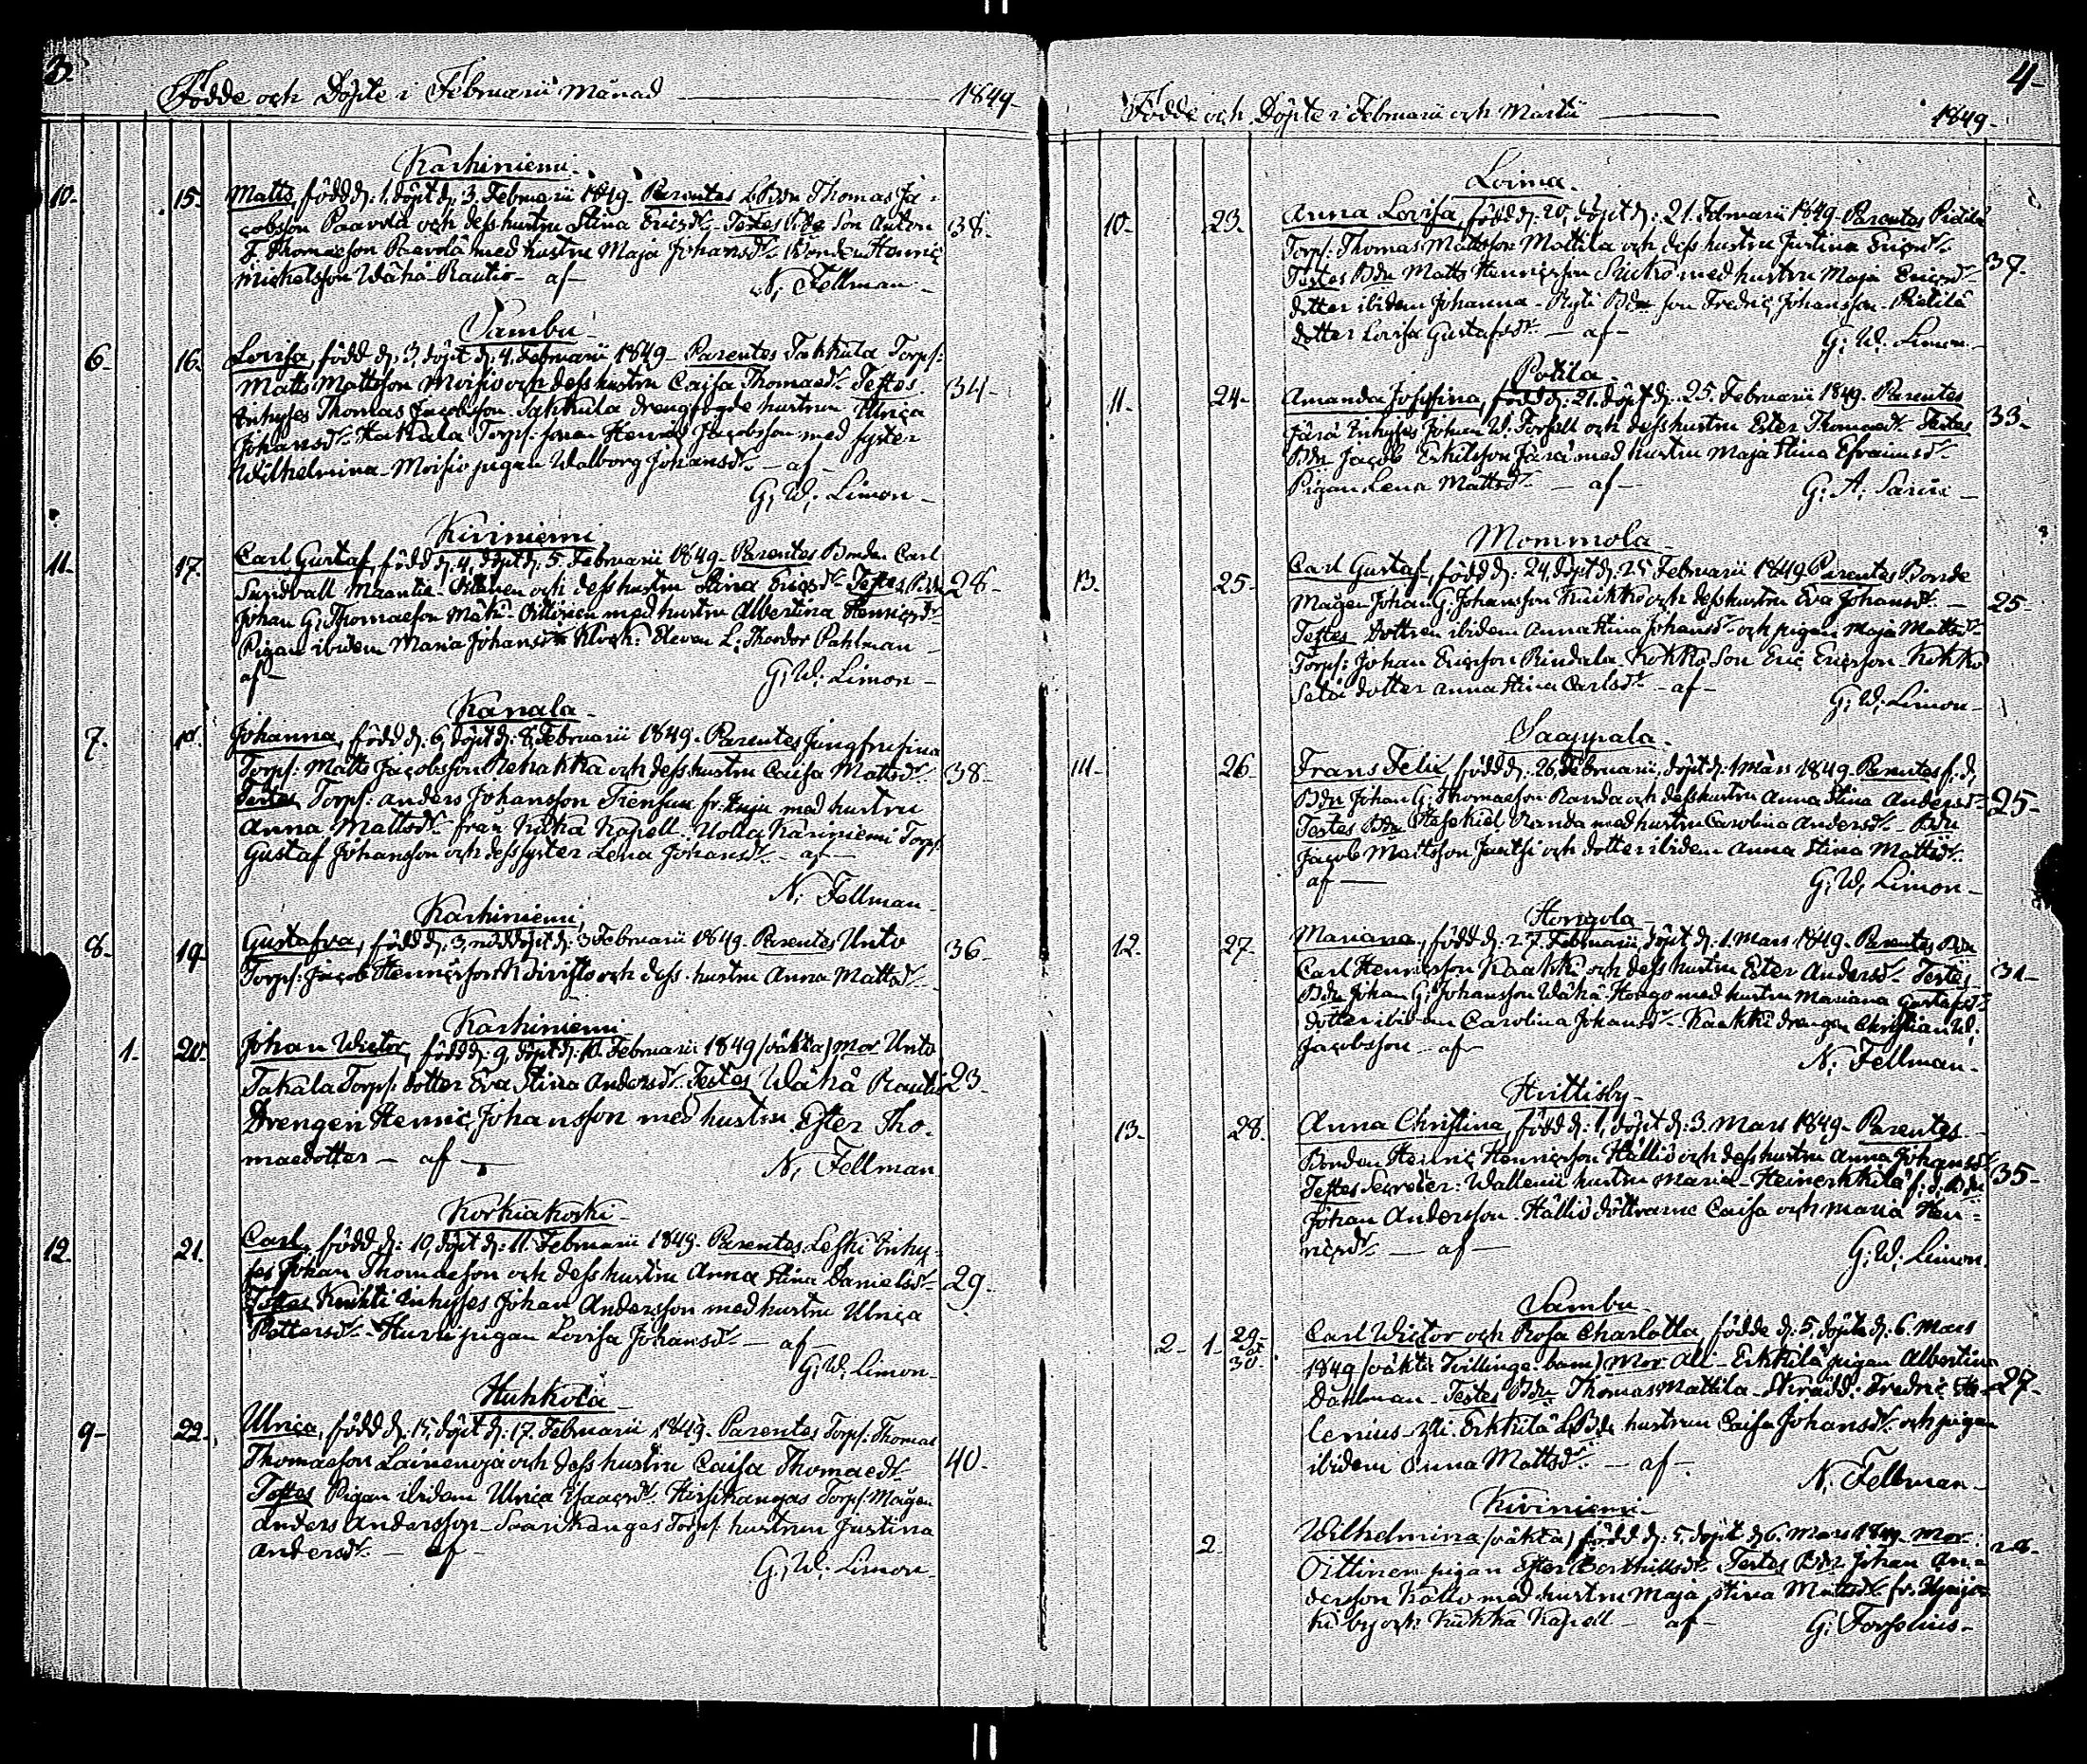 3.
Födde och Döpte i Februarii Månad 1849-
Karhiniemi.
10. 15. Matts, född d: 1. döpt d: 3. Februarii 1849. Parentes LBdn Thomas Ja-
cobsson Paavola och dess hustru Stina Ericsdr. Testes Son Anton 38.
F. Thomaeson Paavola med hustru Maja Johansdr. Bonden Henric
Mickelsson Wäha-Rautio - af -
N. Fellman -
Sambu
6. 16. Lovisa, född d: 3, döpt d: 4. Februarii 1849- Parentes Takkula Torp:
Matts Mattsson Moisio och dess hustru Caisa Thomaedr. Testes 34-
Inhyses Thomas Jacobsson Takkula drengfogde hustrun Ulrica
Johansdr. Hakala Torp. sonen Henric Jacobsson med syster
Wilhelmina- Moisio pigan Walborg Johansdr. - af -
G. W. Limon -
Kiviniemi
11. 17. Carl Gustaf, född d: 4, döpt d: 5. Februarii 1849- Parentes Bonden Carl
Sundvall Maantie-Oittinen och dess hustru Stina Ericsdr. Testes Bdn 28-
Johan G. Thomaeson Mäki-Oittinen med hustru Albertina Henricsdr.
Pigan ibidem Maria Johansdr. Klock: Eleven L. Theodor Pahlman
af -
G. W. Limon -
Kanala
7. 18. Johanna, född d: 6, döpt d: 8, Februarii 1849- Parentes
Torp: Matts Jacobsson Rehakka och dess hustru Caisa Mattsdr. 38-
Testes Torp: Anders Johansson med hustru
Anna Mattsdr. från Kapell. Uotla Kanniemi Torp.
Gustaf Johansson och dess syster Lena Johansdr. - af -
N. Fellman -
Karhiniemi
8. 19. Gustafva, född d: 3, nöddöpt d: 3 Februarii 1849. Parentes Unto 36-
Torp: Jacob Henricsson och dess hustru Anna Mattsdr.
Karhiniemi
1. 20. Johan Wictor, född d: 9, döpt d: 10. Februarii 1849 (oäkta) Mor Unto
Takala Torp: dotter Eva Stina Andersdr. Testes Wähä Rautio 23-
Drengen Henric Johansson med hustru Ester Tho-
maedotter - af -
N. Fellman
Korkiakoski
12. 21. Carl, född d: 10, döpt d: 11. Februarii 1849. Parentes Leski Inhy-
ses Johan Thomaeson och dess hustru Anna Stina Danielsdr. 29.
Testes Knihti Inhyses Johan Andersson med hustru Ulrica
Pettersdr. - Hurri pigan Lovisa Johansdr. - af -
G. W. Limon -
Huhkola
9- 22. Ulrica, född d: 15, döpt d: 17. Februarii 1849. Parentes Torp: Thomas
Thomaeson Lainenoja och dess hustru Caisa Thomaedr. 40-
Testes Pigan ibidem Ulrica Isaacsdr. Hirsikangas Torp: Mågen
Anders Andersson - Saarikangas Torp: hustrun Justina
Andersdr. - af -
G. W. Limon -
4-
Födde och Döpte i Februarii och Martii 1849-
Loima -
10. 23. Anna Lovisa, född d: 20, döpt d: 21. Februarii 1849. Parentes Pietilä
Torp: Thomas Mattsson Mattila och dess hustru Justina Ericsdr. 37.
Testes Bdn Matts Henricsson med hustru Maja Ericsdr.
dotter ibidem Johanna - Ryti Bdn son Fredric Johansson - Pietilä
dotter Lovisa Gustafsdr. - af -
G. W. Limon -
Potila -
11. 24. Amanda Josefina, född d: 21. döpt d: 25. Februarii 1849. Parentes
Jära Inhyses Johan W. Forsell och dess hustru Ester Thomaedr. Testes 33.
Bdn Jacob Erkilsson Jära med hustru Maja Stina Efraimsdr.
Pigan Lena Mattsdr. - af -
G. A. -
Mommola -
13. 25. Carl Gustaf, född d: 24, döpt d: 25 Februarii 1849 Parentes Bonde
Mågen Johan G. Johansson Kuikko och dess hustru Eva Johansdr. - 25-
Testes Dottren ibidem Anna Stina Johansdr. och pigan Maja Mattsdr.
Torp: Johan Ericsson Rindala - Kokko Son Eric Ericsson - Kokko
Setä dotter Anna Stina Carlsdr. - af -
G. W. Limon -
Saappala -
14. 26. Frans Felix, född d: 26, Februarii, döpt d: 1 Mars 1849. Parentes f. d.
Bdn Johan G. Thomaeson Randa och dess hustru Anna Stina Andersdr. 25-
Testes Bdn Hesekiel Randa med hustru Carolina Andersdr. - Bdn
Jacob Mattsson och dotter ibidem Anna Stina Mattsdr.
af -
G. W. Limon -
Hongola -
12. 27. Mariana, född d: 27. Februarii, döpt d: 1. Mars 1849. Parentes Bdn
Carl Henricsson Kaakki och dess hustru Ester Andersdr. Testes 31-
Bdn Johan G. Johansson Wähä-Hongo med hustru Mariana Gustafsdr.
dotter ibidem Carolina Johansdr. - Kaakki drengen Christian W.
Jacobsson - af -
N. Fellman -
Hvittisby -
13. 28. Anna Christina, född d: 1, döpt d: 3. Mars 1849- Parentes
Bonden Henric Henricsson Hällio och dess hustru Anna Johansdr. 35-
Testes : Wallenii hustru Maria - Heinerkkilä f. d. Bdn
Johan Andersson - Hällio döttrarne Caisa och Maria Hen-
ricsdr. - af -
G. W. Limon.
Sambu -
2- 1- 29- och 30. Carl Wictor och Rosa Charlotta, födde d: 5, döpta d: 6. Mars
1849 (oäkta Tvillinge barn) Mor Ali-Erkkilä pigan Albertina
Dahlman - Testes Bdn Thomas Mattila - Skrädd: Fredric 27-
- Yli-Erkkilä LBdn hustrun Caisa Johansdr. och pigan
ibidem Anna Mattsdr. - af -
N. Fellman -
Kiviniemi -
2. Wilhelmina (oäkta) född d: 5, döpt d: 6. Mars 1849- Mor
Oittinen pigan Ester Berthillsdr. Testes Bdn Johan An-
dersson Kallo med hustru Maja Stina Mattsdr. fr.
by och Kapell - af -
G. Forselius -